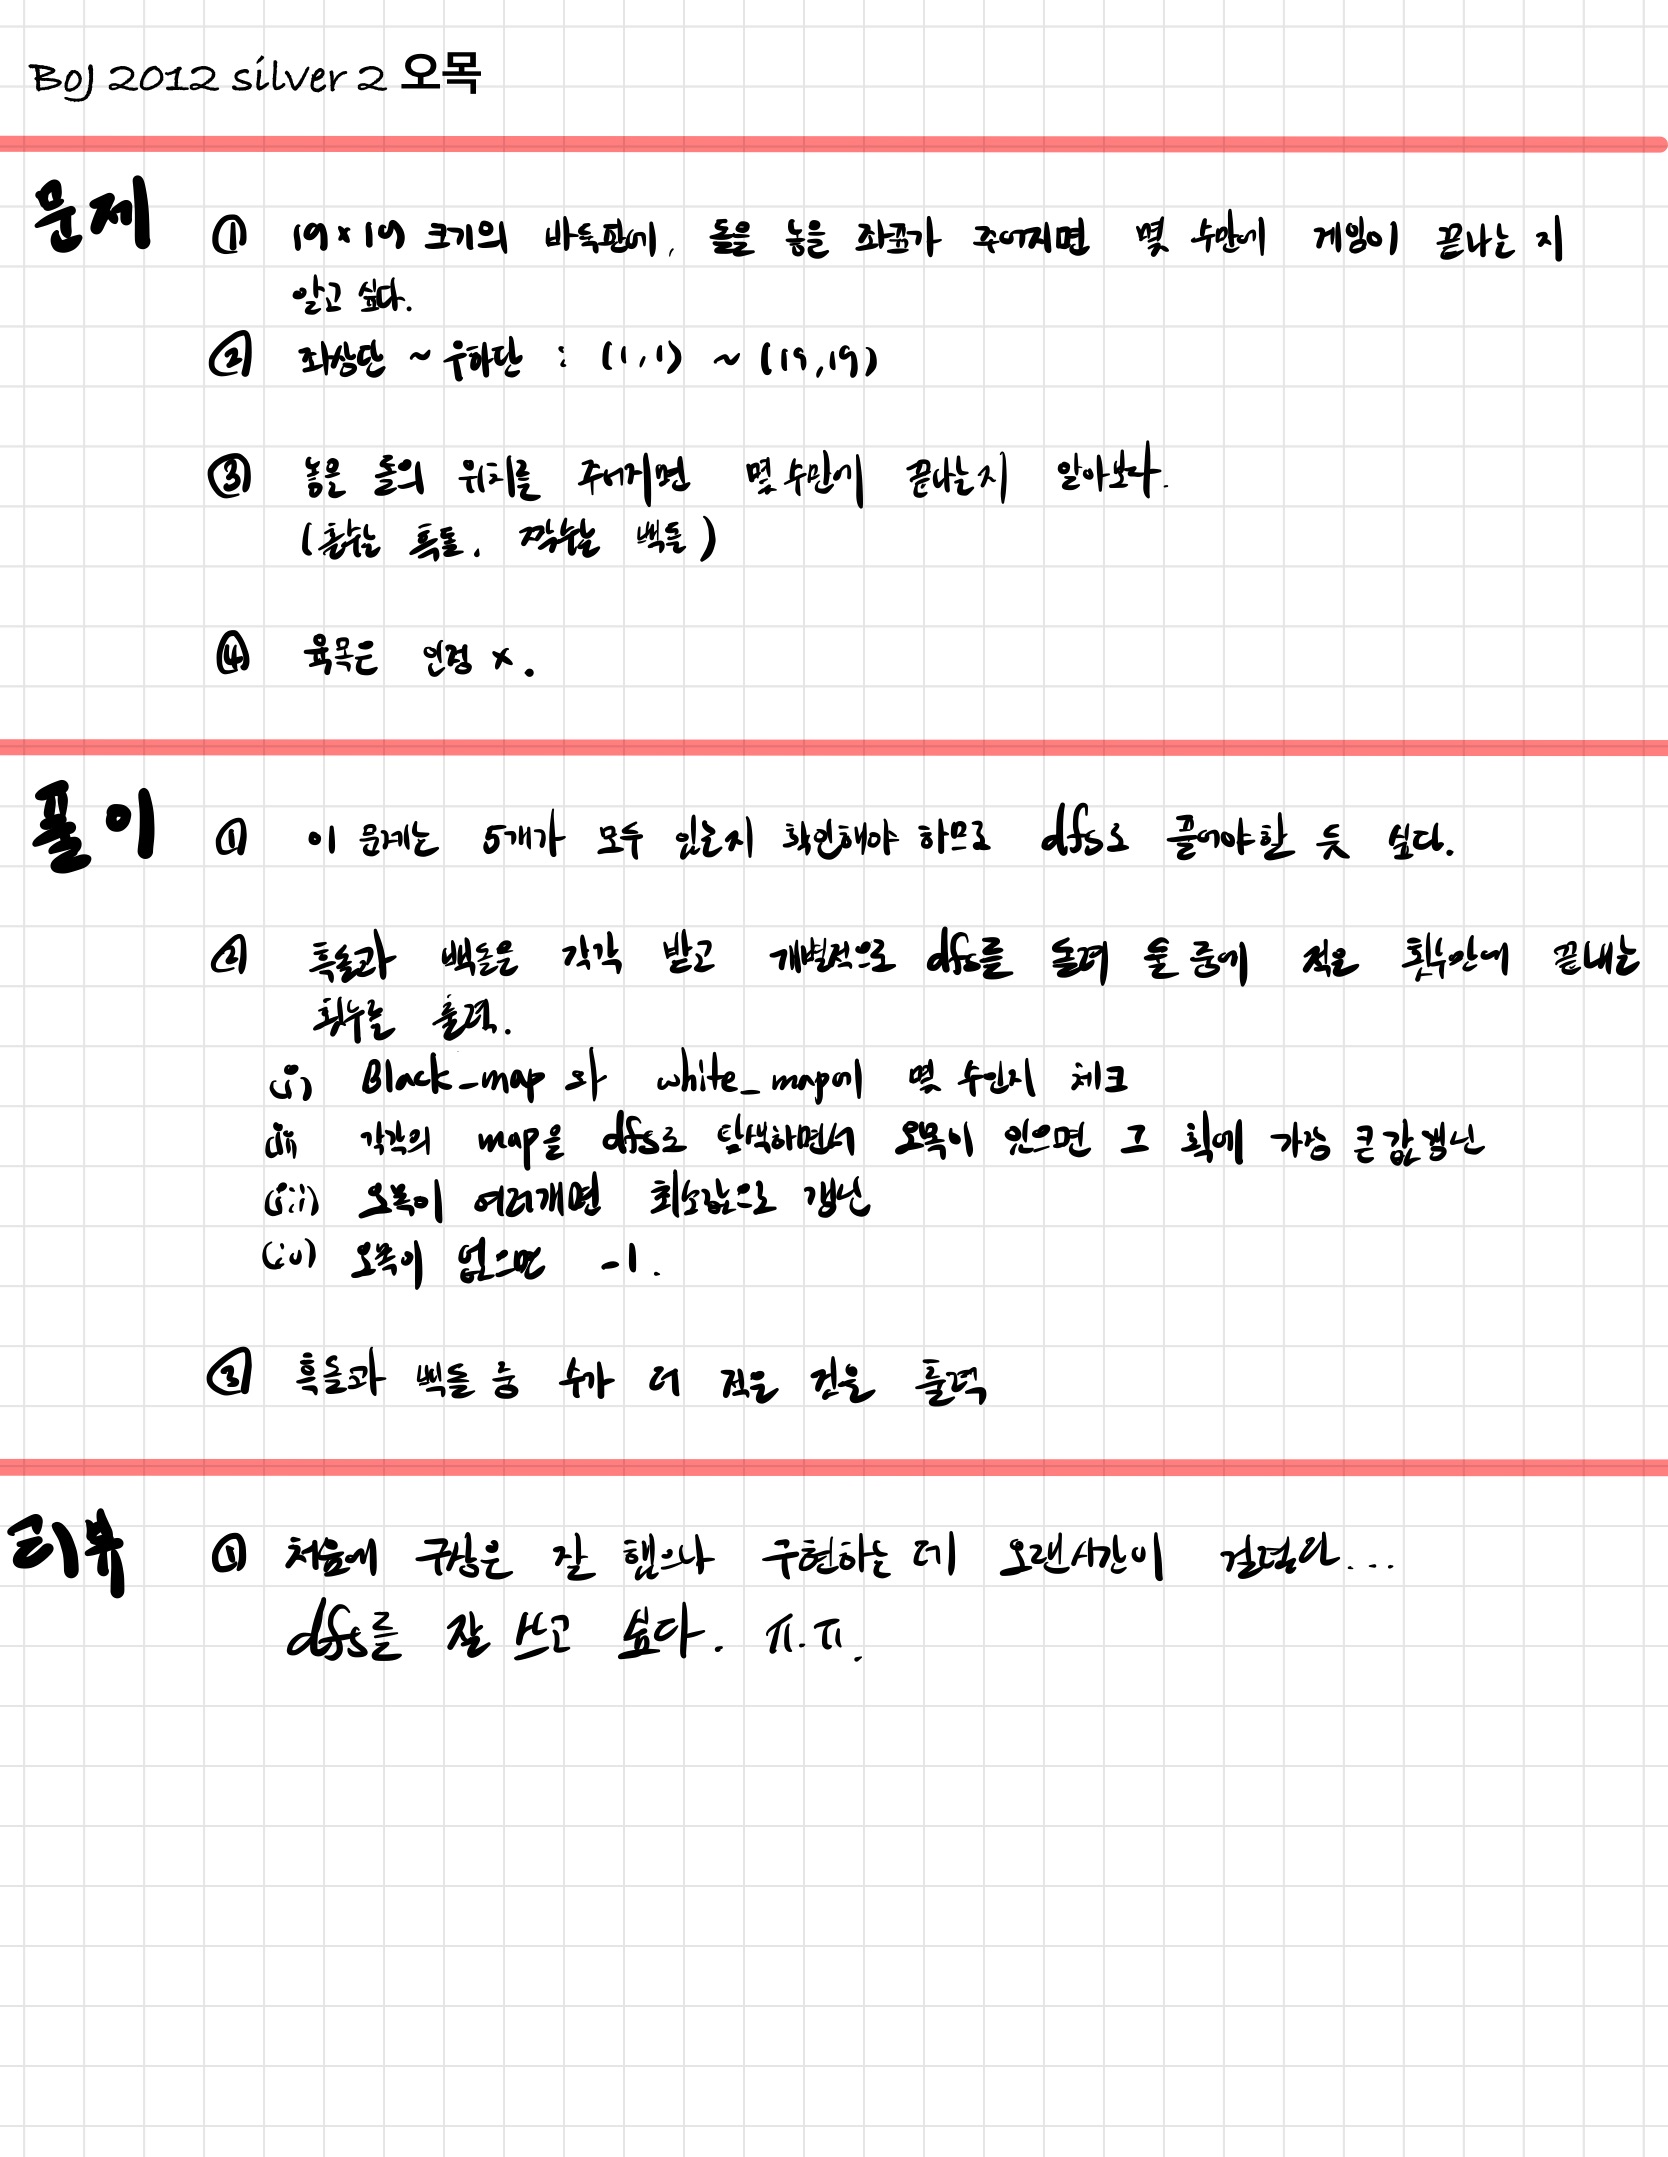 BOJ 2012 silver 2 오목
문제 ① 19×19 크기의 바둑판에, 돌을 놓을 좌표가 주어지면 몇 수만에 게임이 끝나는 지
알고 싶다.
② 좌상단 ~ 우하단 : (1,1) ~ (19,19)
③ 놓은 돌의 위치를 주어지면 몇 수만에 끝나는지 알아보다.
(홀수는 흑돌, 짝수는 백돌)
④ 육목은 인정 x.
풀이 ① 이 문제는 5개가 모두 있는지 확인해야 하므로 dfs로 풀어야할 듯 싶다.
② 흑돌과 백돌을 각각 받고 개별적으로 dfs를 돌려 둘 중에 적은 횟수안에 끝내는
횟수를 출력.
(i) Black_map 와 white_map에 몇 수인지 체크
(ii) 각각의 map을 dfs로 탐색하면서 오목이 있으면 그 획에 가장 큰값 갱신
(iii) 오목이 여러개면 최소값으로 갱신
(iv) 오목이 없으면 -1.
③ 흑돌과 백돌 중 수가 더 적은 것을 출력
리뷰 ① 처음에 구상은 잘 했으나 구현하는 데 오랜시간이 걸렸다...
dfs를 잘 쓰고 싶다. ㅠ.ㅠ.